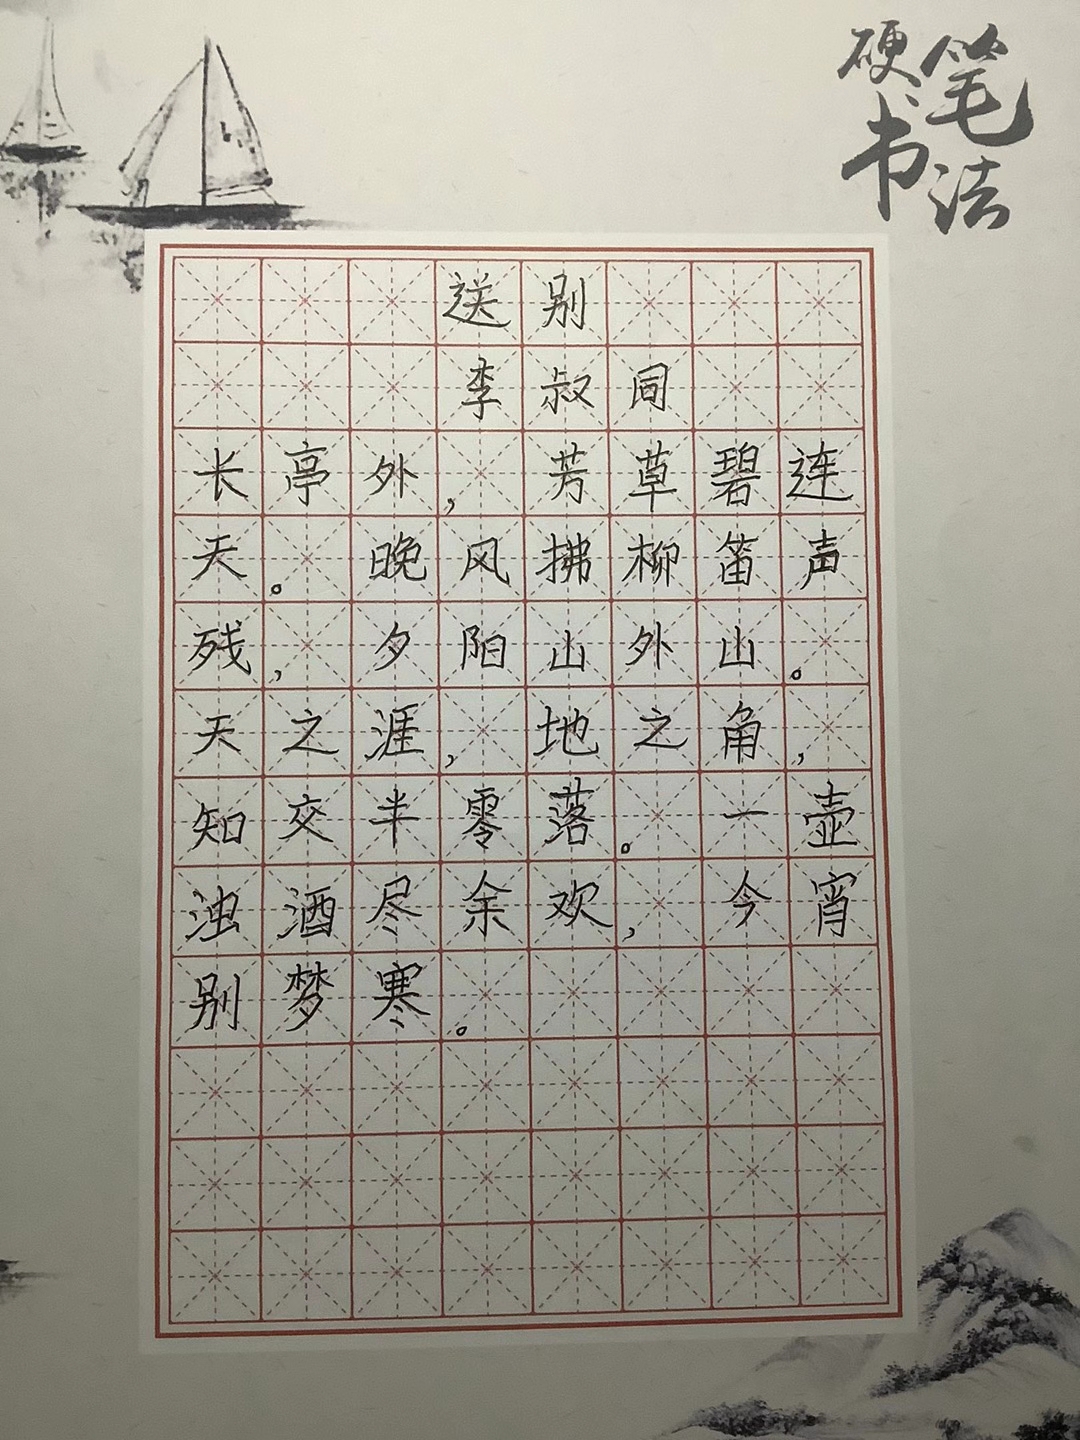 硬笔
书法
送别
李叔同
长亭外，芳草碧连
天。晚风拂柳笛声
残，夕阳山外山。
天之涯，地之角，
知交半零落。一壶
浊酒尽余欢，今宵
别梦寒。